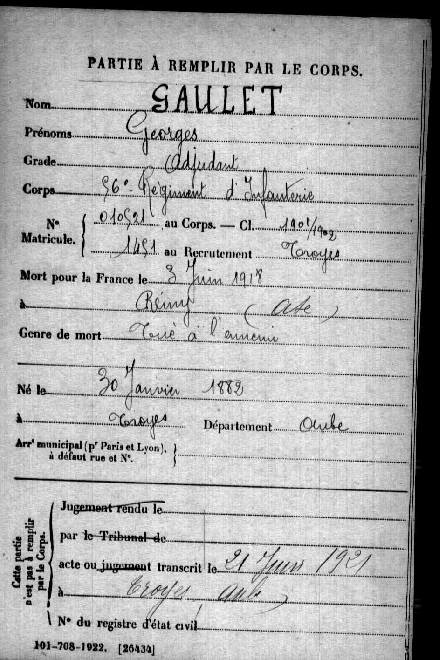 PARTIE À REMPLIR PAR LE CORPS.
Nom GAULET
Prénoms Georges
Grade Adjudant
Corps 56e Régiment d'Infanterie
Nos Matricule. { 010521 au Corps. — Cl. 1901/1902
1451 au Recrutement Troyes
Mort pour la France le 3 Juin 1918
à Rémy (Oise)
Genre de mort Tué à l'ennemi
Né le 30 Janvier 1882
à Troyes Département Aube
Arrt municipal (pr Paris et Lyon),
à défaut rue et No.
Cette partie n'est pas à remplir par le Corps.
Jugement rendu le
par le Tribunal de
acte ou jugement transcrit le 21 Juin 1921
à Troyes Aube
No du registre d'état civil
101-708-1922. [26434]